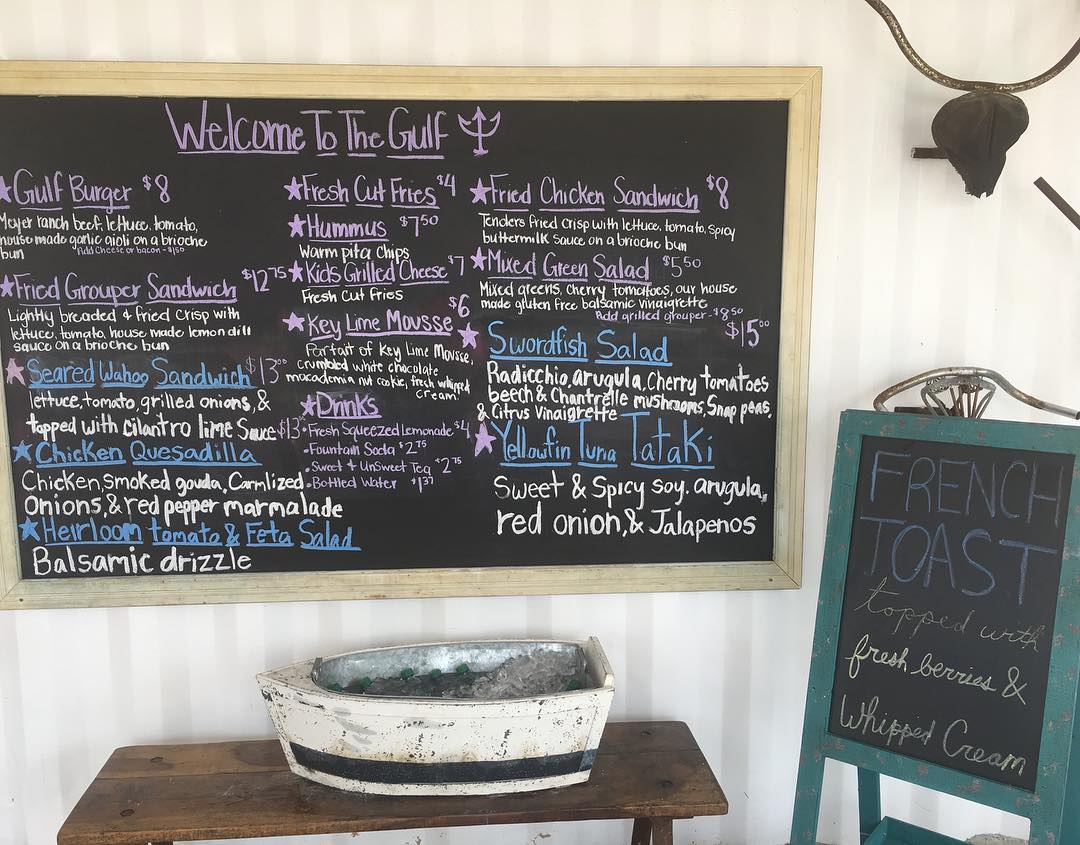 Welcome To The Gulf
Gulf Burger $8
Meyer ranch beef, lettuce, tomato,
house made garlic aioli on a brioche
bun Add Cheese or bacon - $1.50
Fried Grouper Sandwich $12.75
Lightly breaded & fried crisp with
lettuce, tomato, house made lemon dill
sauce on a brioche bun
Seared Wahoo Sandwich $13.00
lettuce, tomato, grilled onions, &
topped with cilantro lime Sauce
Chicken Quesadilla $13
Chicken, smoked gouda, Carmlized
Onions, & red pepper marmalade
Heirloom tomato & Feta Salad
Balsamic drizzle
Fresh Cut Fries $4
Hummus $7.50
Warm pita Chips
Kids Grilled Cheese $7
Fresh Cut Fries
$6
Key Lime Mousse
Parfait of Key Lime Mousse,
crumbled white chocolate
macadamia nut cookie, fresh whipped
cream
Drinks
•Fresh Squeezed Lemonade $4
•Fountain Soda $2.75
•Sweet & UnSweet Tea $2.75
•Bottled Water $1.37
Fried Chicken Sandwich $8
Tenders fried crisp with lettuce, tomato, spicy
buttermilk sauce on a brioche bun
Mixed Green Salad $5.50
Mixed greens, cherry tomatoes, our house
made gluten free balsamic vinaigrette
Add grilled grouper - $8.50
$15.00
Swordfish Salad
Radicchio, arugula, Cherry tomatoes
beech & Chantrelle mushrooms, Snap peas,
& Citrus Vinaigrette
Yellowfin Tuna Tataki
Sweet & Spicy soy, arugula,
red onion, & Jalapenos
FRENCH
TOAST
topped with
fresh berries &
Whipped Cream